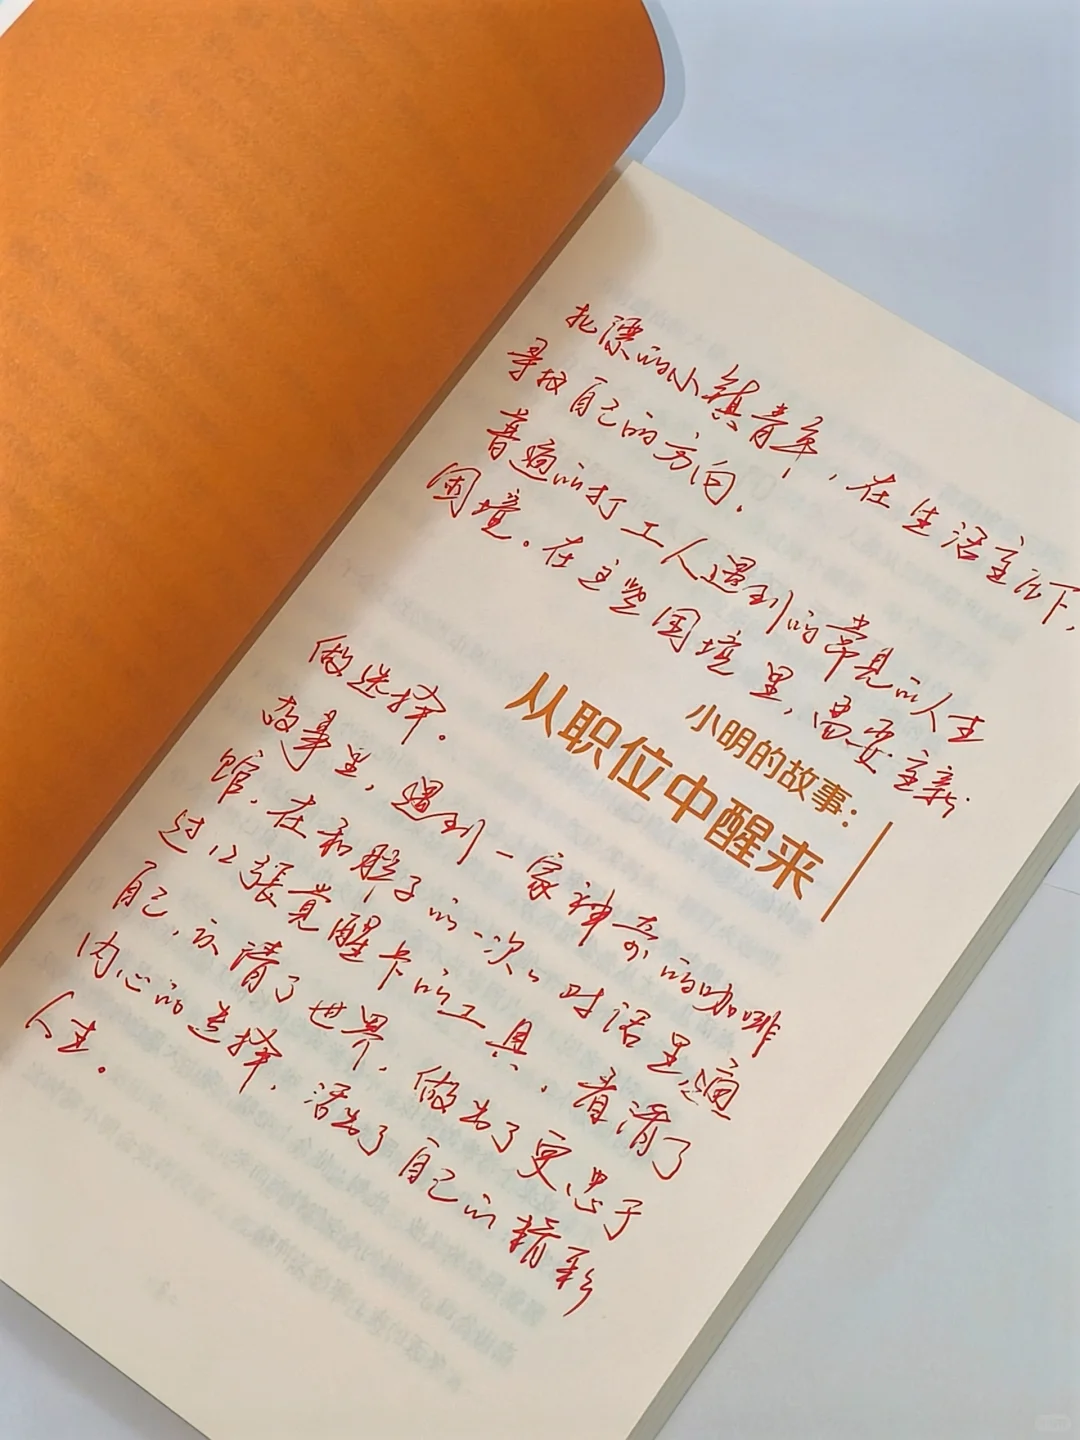 北漂的小镇青年，在生活重压下，
寻找自己的方向.
普通的打工人遇到的常见的人生
困境。在这些困境里，需要重新
做选择。
小明的故事：
从职位中醒来
故事里，遇到一家神奇的咖啡
馆.在和胖子的一次次对话里,通
过12张觉醒卡的工具，看清了
自己，认清了世界，做出了更忠于
内心的选择，活出了自己的精彩
人生。